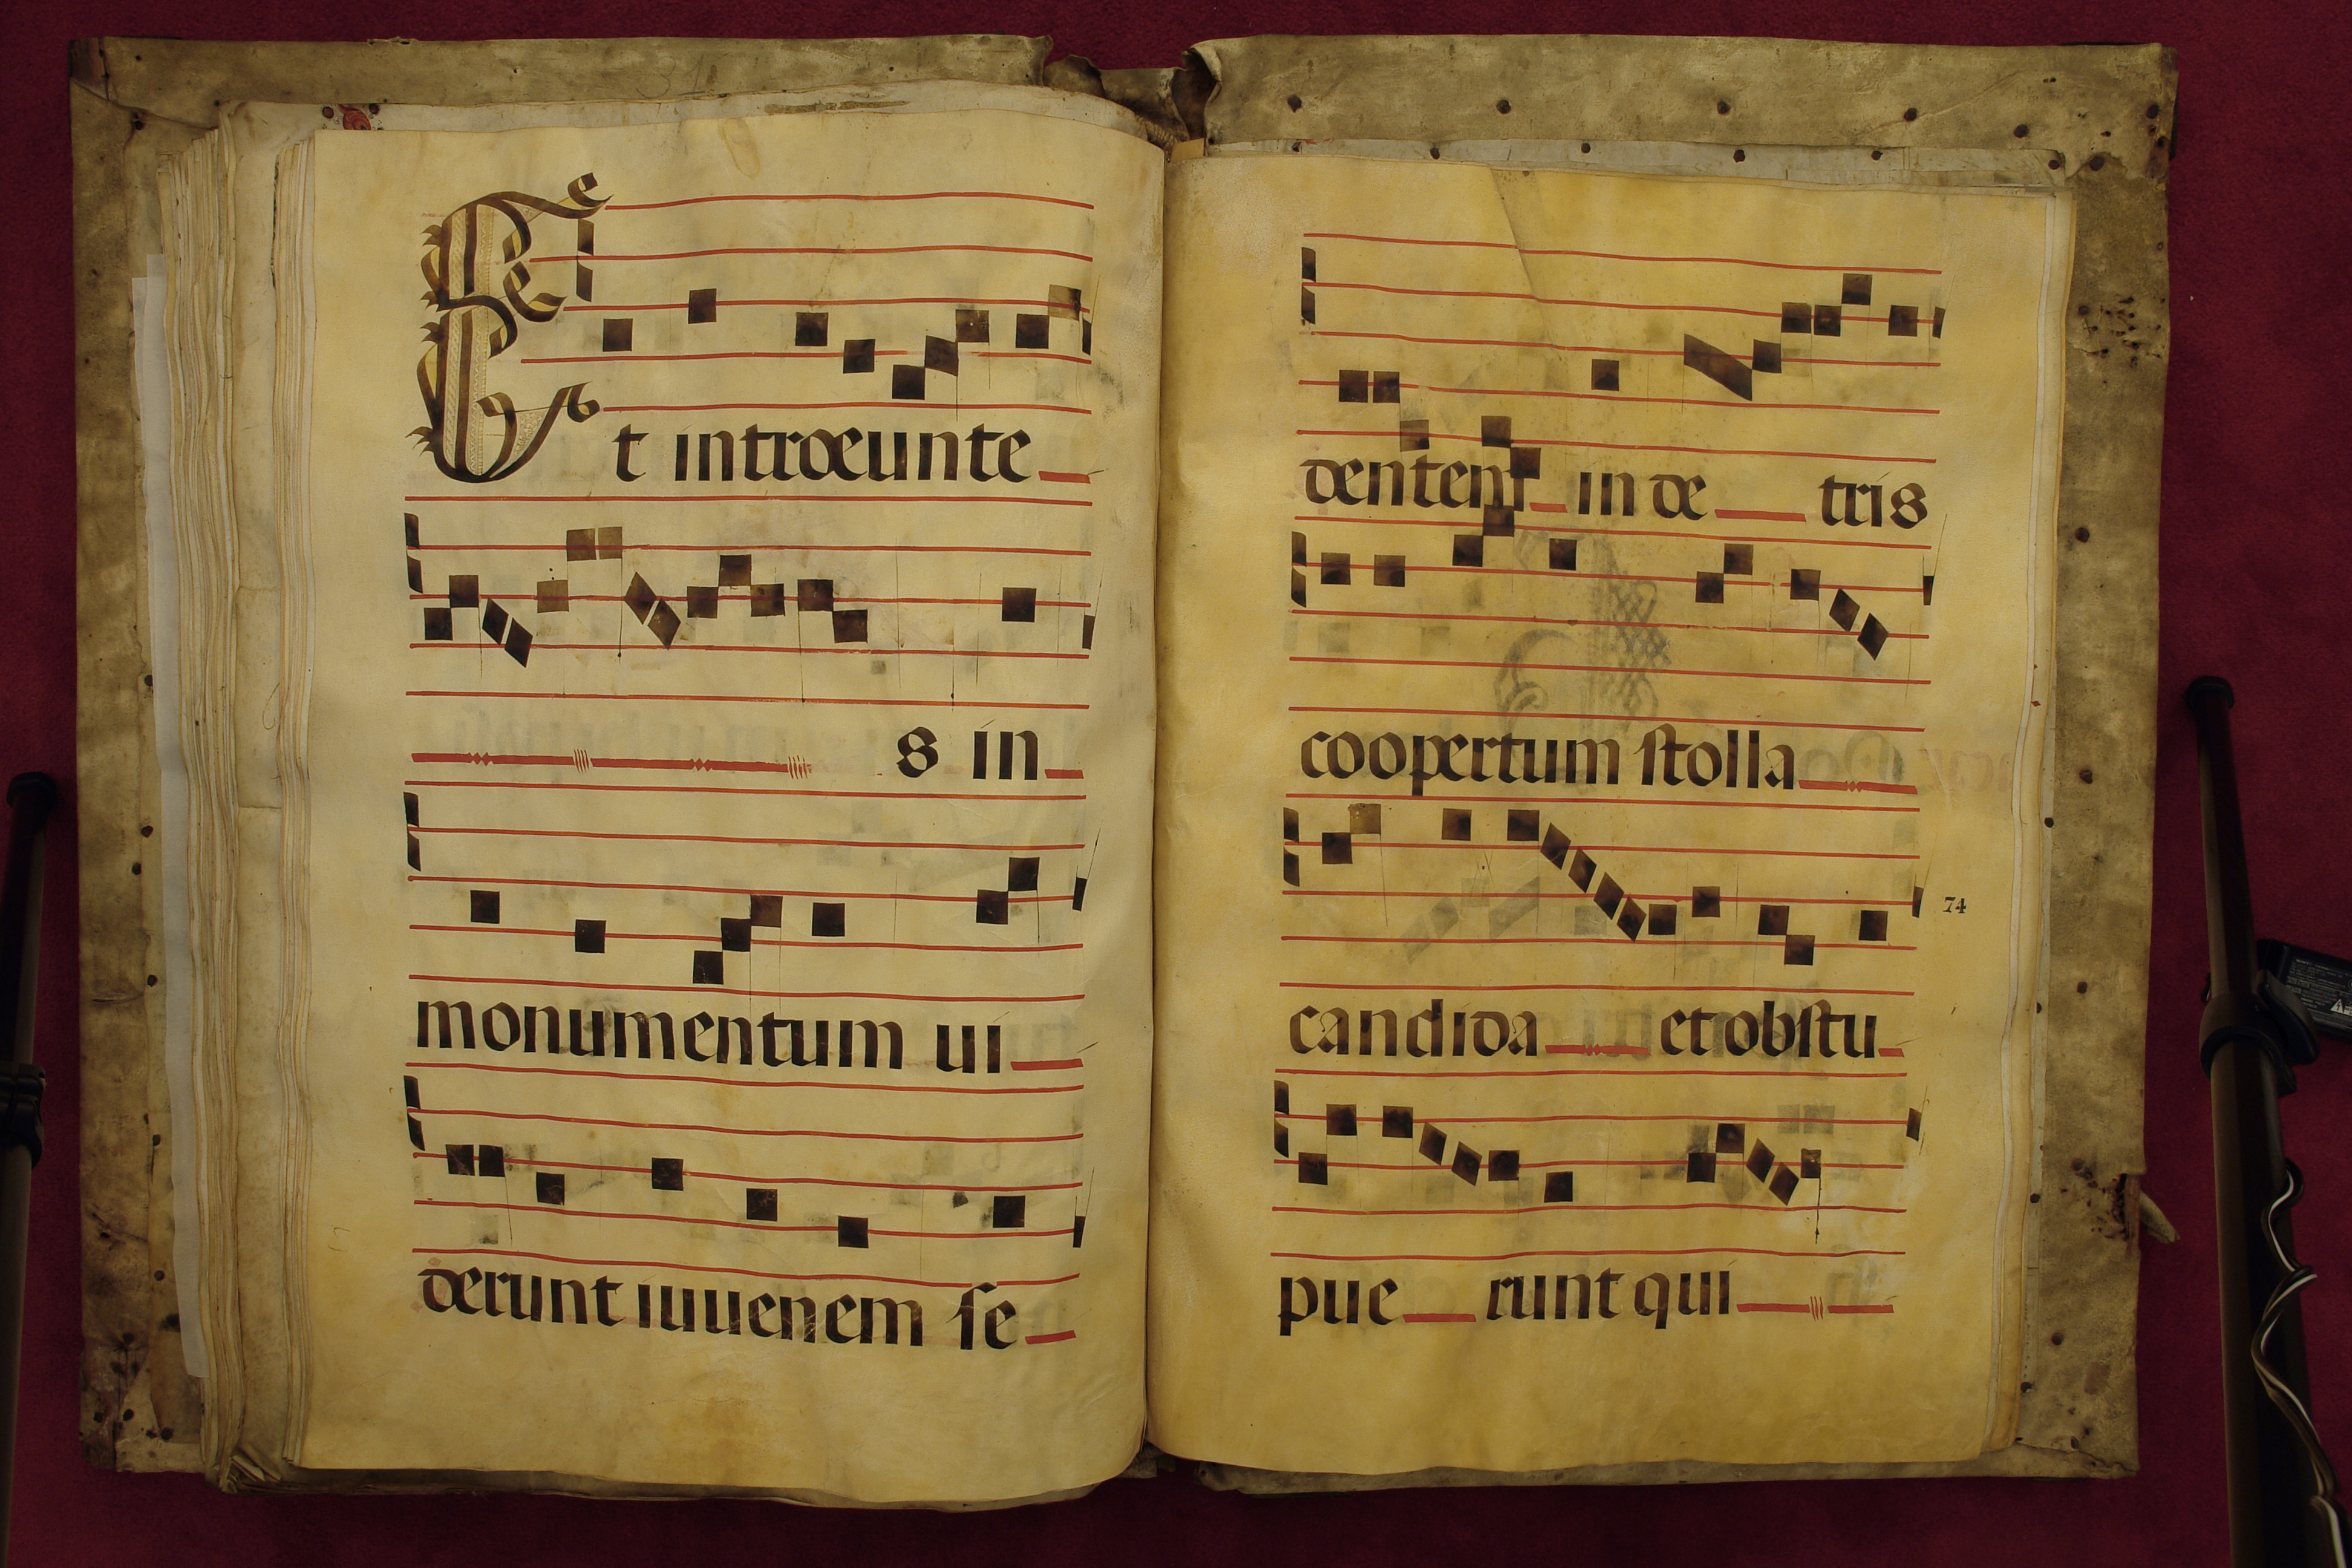 Et introeunte
s in
monumentum ui
derunt iuuenem se
dentem in de tris
coopertum stolla
candida et obstu
74
pue runt qui